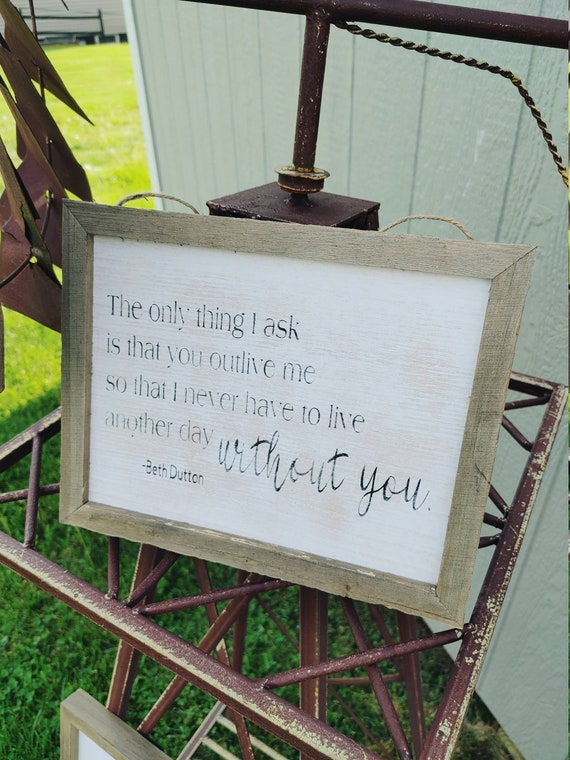 The only thing I ask
is that you outlive me
so that I never have to live
another day without you.
-Beth Dutton